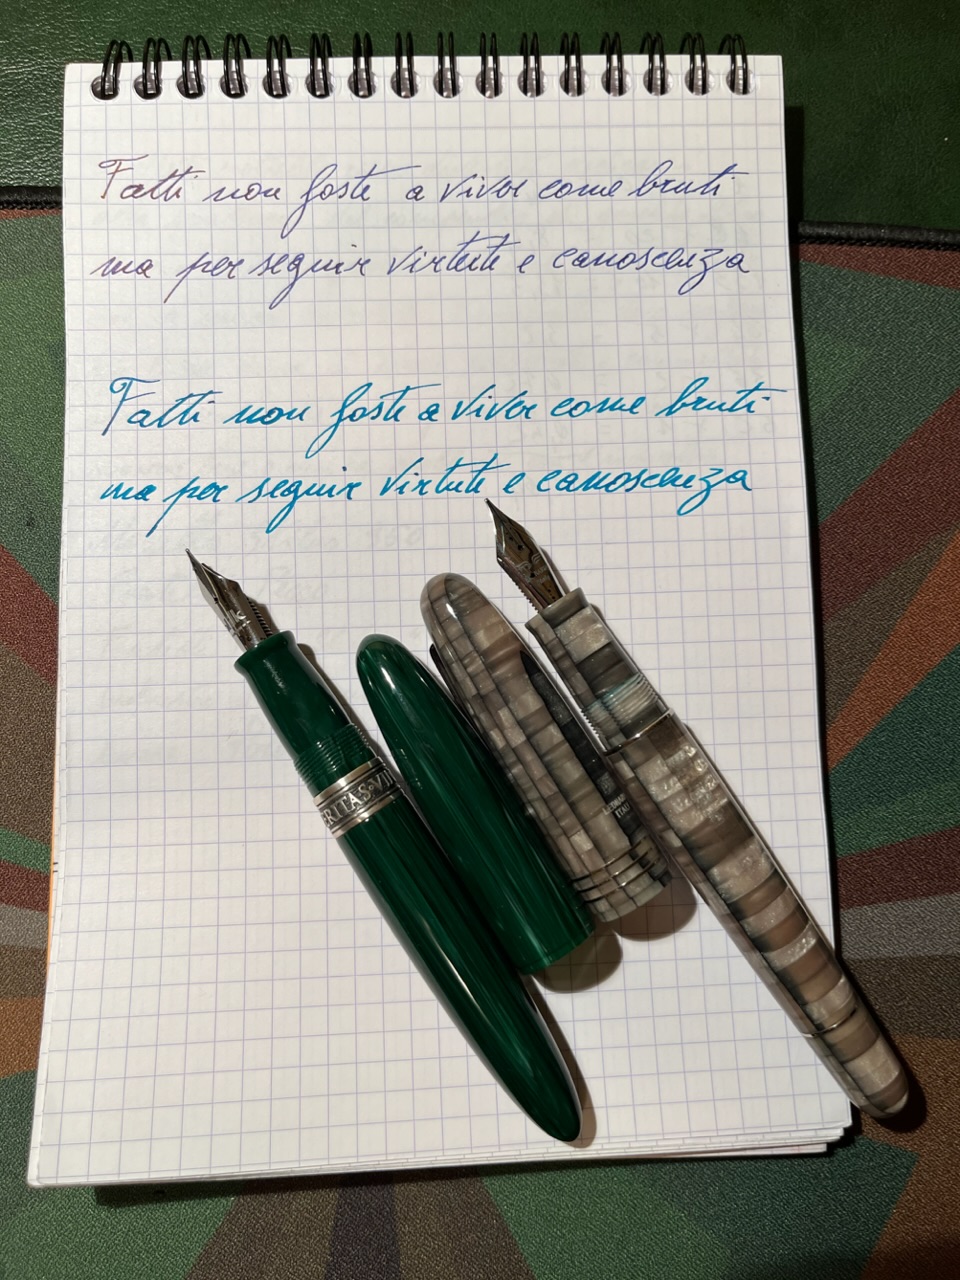 Fatti non foste a viver come bruti
ma per seguir virtute e canoscenza
Fatti non foste a viver come bruti
ma per seguir virtute e canoscenza
ERITAS VI
ITALY